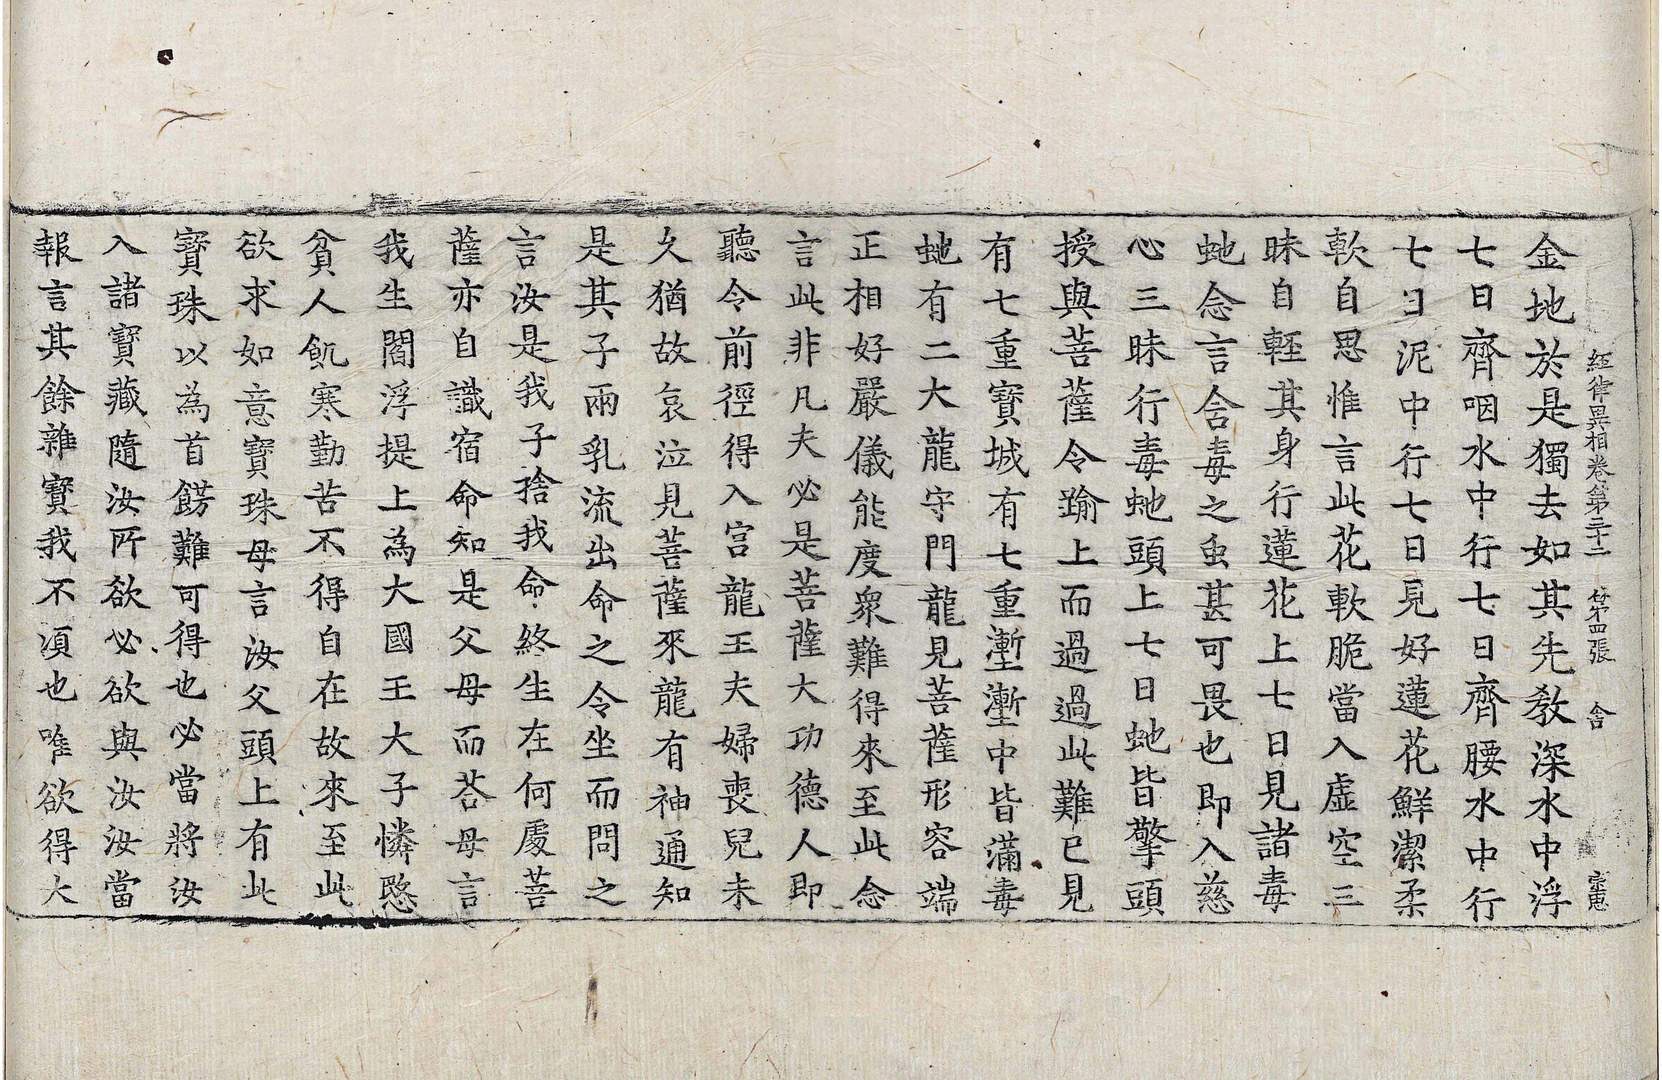 經律異相卷第三十二 第四張 舍
金地於是獨去如其先教深水中浮
七日齊咽水中行七日齊腰水中行
七日泥中行七日見好蓮花鮮潔柔
軟自思惟言此花軟脆當入虛空三
昧自輕其身行蓮花上七日見諸毒
虵念言含毒之虫甚可畏也即入慈
心三昧行毒虵頭上七日虵皆擎頭
授與菩薩令踰上而過過此難已見
有七重寶城有七重塹塹中皆滿毒
虵有二大龍守門龍見菩薩形容端
正相好嚴儀能度衆難得來至此念
言此非凡夫必是菩薩大功德人即
聽令前徑得入宮龍王夫婦喪兒未
久猶故哀泣見菩薩來龍有神通知
是其子兩乳流出命之令坐而問之
言汝是我子捨我命終生在何處菩
薩亦自識宿命知是父母而荅母言
我生閻浮提上為大國王大子憐愍
貧人飢寒勤苦不得自在故來至此
欲求如意寶珠母言汝父頭上有此
寶珠以為首餝難可得也必當將汝
入諸寶藏隨汝所欲必欲與汝汝當
報言其餘雜寶我不湏也唯欲得大